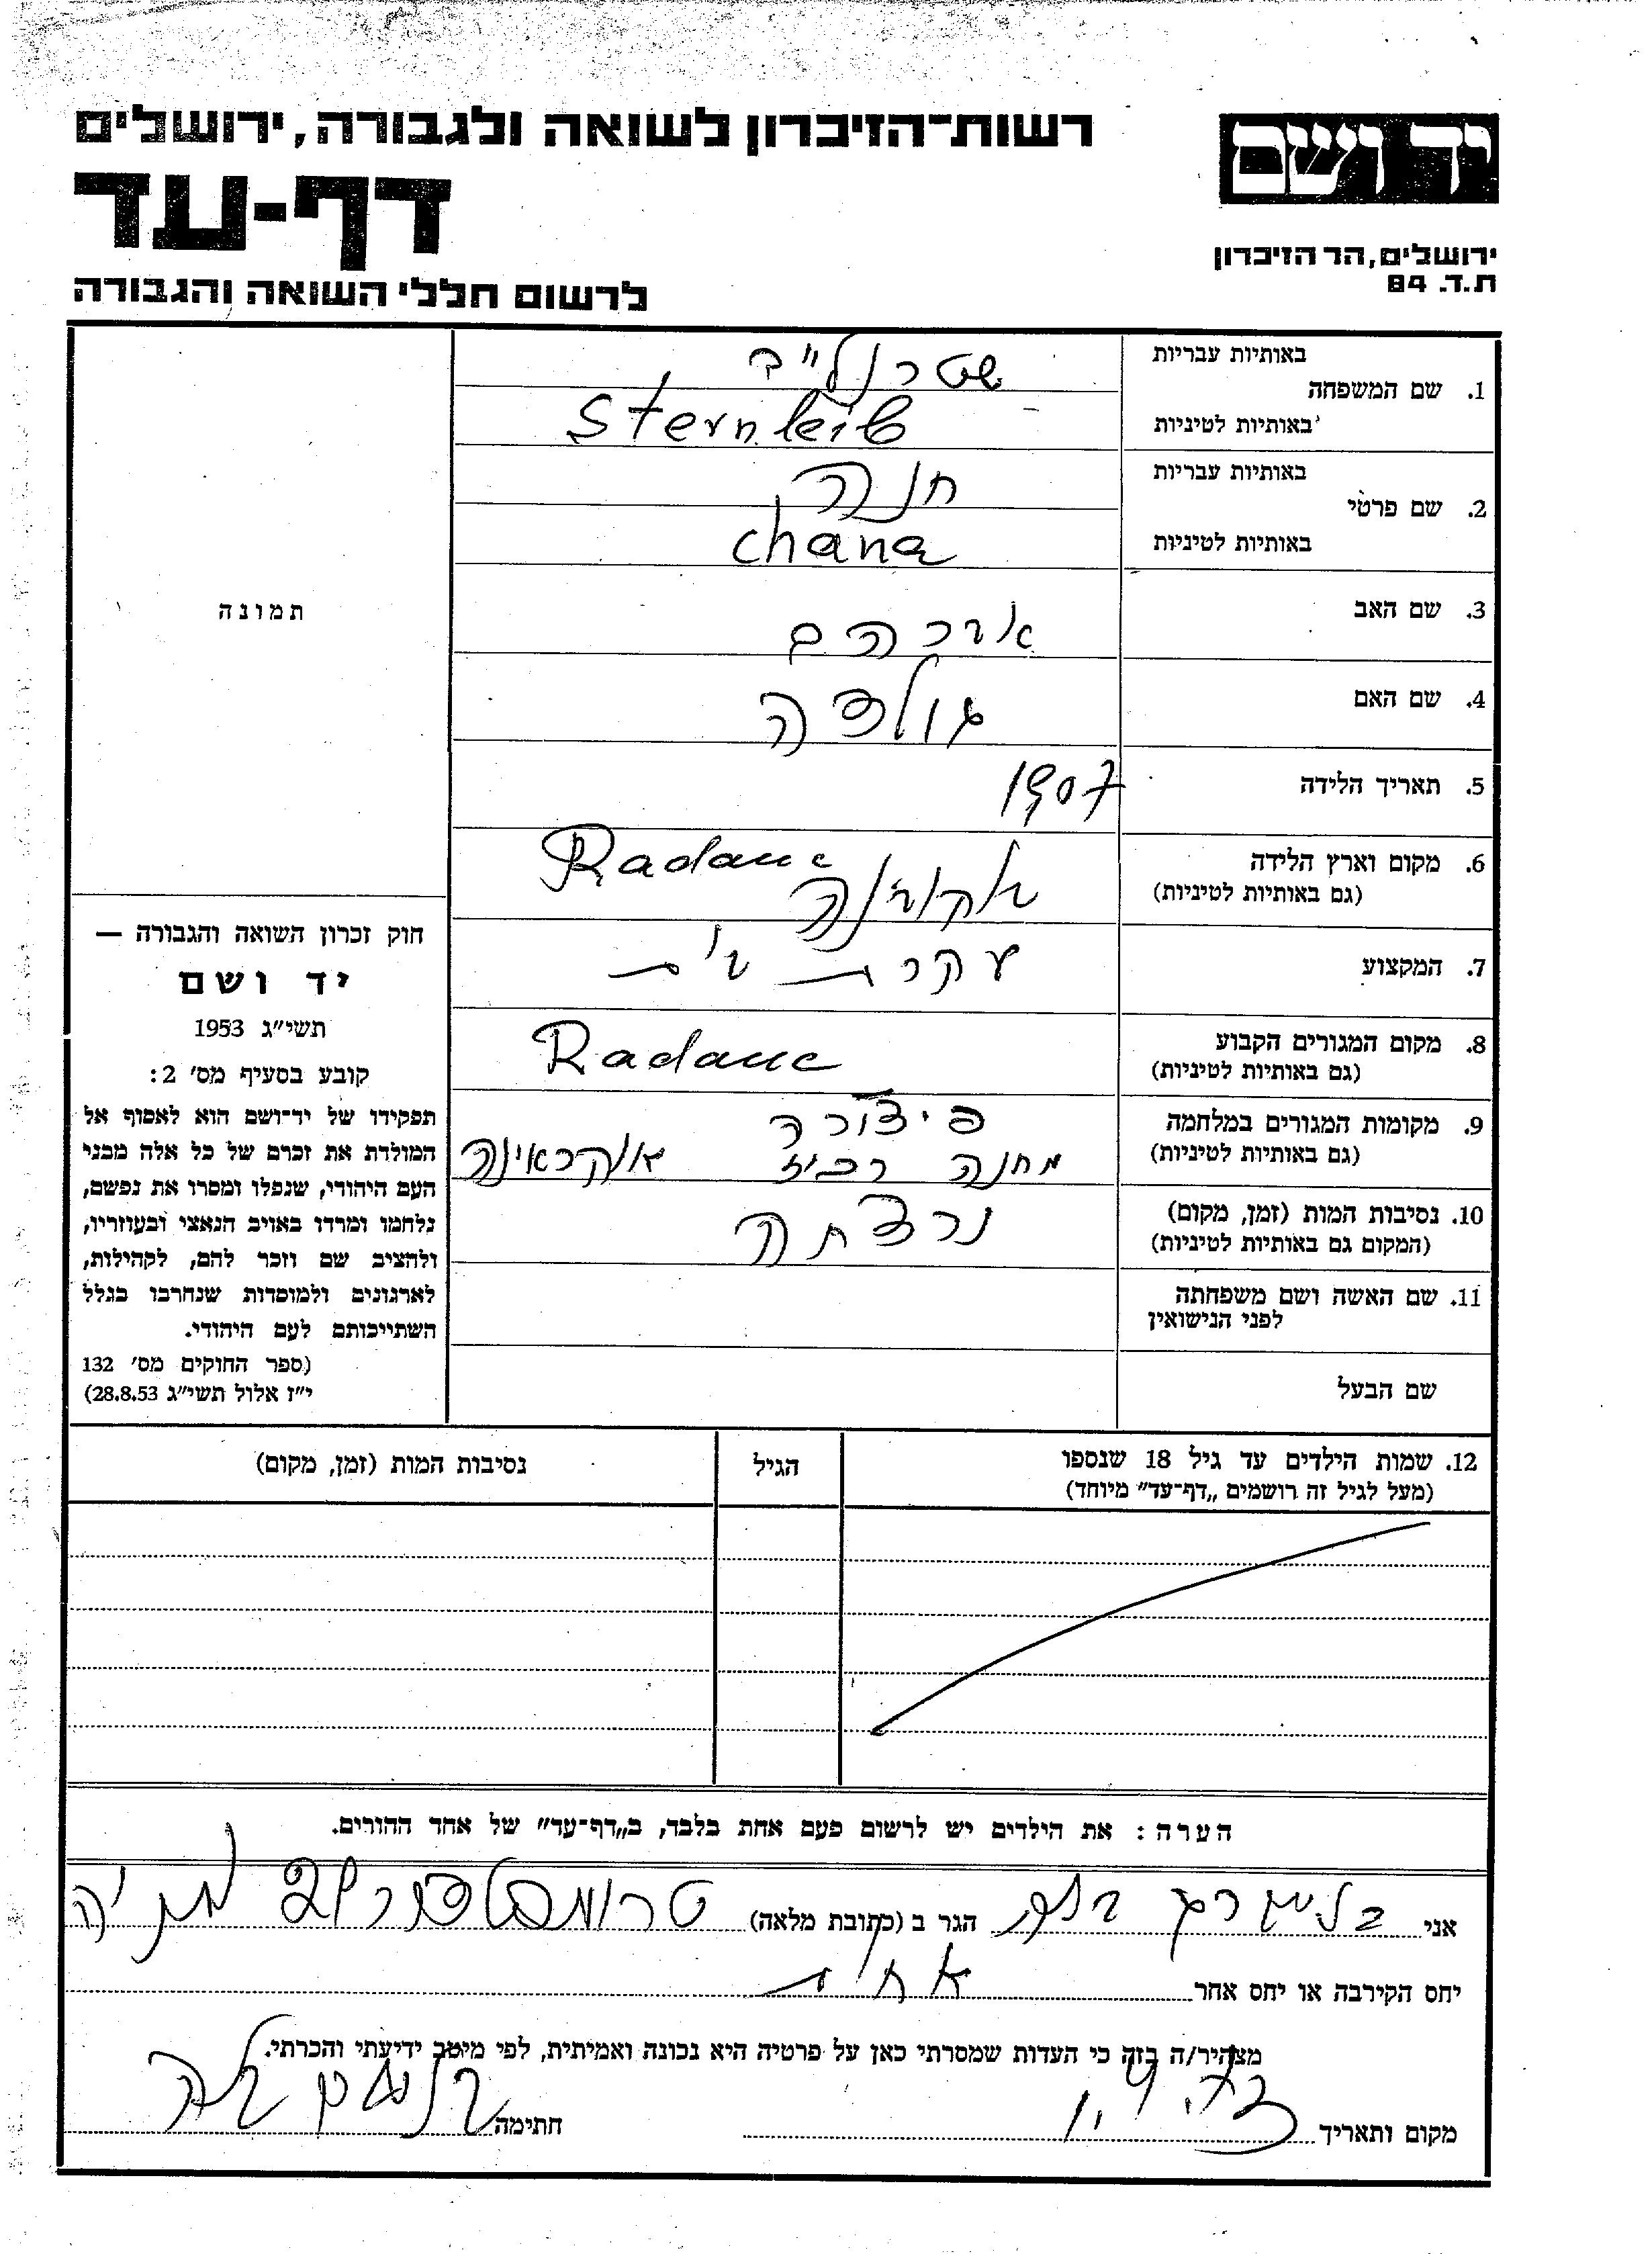 רשות־הזיכרון לשואה ולגבורה, ירושלים
יד ושם
דף-עד
ירושלים, הר הזיכרון
ת.ד. 84
לרשום חללי השואה והגבורה
באותיות עבריות
1. שם המשפחה
באותיות לטיניות
שטרנל״ב
Sternleib
באותיות עבריות
2. שם פרטי
באותיות לטיניות
חנה
chana
3. שם האב
אברהם
4. שם האם
גולדה
5. תאריך הלידה
1907
6. מקום וארץ הלידה
(גם באותיות לטיניות)
Radauc
7. המקצוע
עקרת בית
8. מקום המגורים הקבוע
(גם באותיות לטיניות)
Radauc
9. מקומות המגורים במלחמה
(גם באותיות לטיניות)
פיצורה
מחנה רכוז אוקראינה
10. נסיבות המות (זמן, מקום)
(המקום גם באותיות לטיניות)
נרצחה
11. שם האשה ושם משפחתה
לפני הנישואין
שם הבעל
תמונה
חוק זכרון השואה והגבורה —
יד ושם
תשי״ג 1953
קובע בסעיף מס׳ 2:
תפקידו של יד־ושם הוא לאסוף אל
המולדת את זכרם של כל אלה מבני
העם היהודי, שנפלו ומסרו את נפשם,
נלחמו ומרדו באויב הנאצי ובעוזריו,
ולהציב שם וזכר להם, לקהילות,
לארגונים ולמוסדות שנחרבו בגלל
השתייכותם לעם היהודי.
(ספר החוקים מס׳ 132
י״ז אלול תשי״ג 28.8.53)
12. שמות הילדים עד גיל 18 שנספו
(מעל לגיל זה רושמים „דף־עד״ מיוחד)
הגיל
נסיבות המות (זמן, מקום)
הערה: את הילדים יש לרשום פעם אחת בלבד, ב„דף־עד״ של אחד ההורים.
אני הגר ב (כתובת מלאה) טרומפלדור 29 נתניה
יחס הקירבה או יחס אחר אחות
מצהיר/ה בזה כי העדות שמסרתי כאן על פרטיה היא נכונה ואמיתית, לפי מיטב ידיעתי והכרתי.
מקום ותאריך חתימה